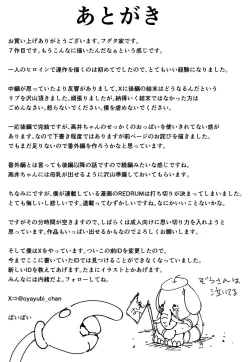 あとがき
お買い上げありがとうございます。フグタ家です。
7作目です。もうこんなに描いたんだなぁという感じです。
一人のヒロインで連作を描くのは初めてでしたので、とてもいい経験になりました。
中編が思っていたより反響がありまして、Xに後編の結末はどうなるんだという
リプを沢山頂きました。頑張りましたが、納得いく結末ではなかった方は
ごめんなさい。怒らないでください。僕を虐めないでください。
一応後編で完結ですが、高井ちゃんのせっかくのおっぱいを使いきれてない感が
あります。なので下書き程度ではありますが初ページのお詫びを描きました。
でもまだ足りないので番外編を作ろうかなと思っています。
番外編とは言っても後編以降の話ですので続編みたいな感じですね。
高井ちゃんには母乳が出せるように沢山準備しておいてもらいます。
ちなみにですが、僕が連載している漫画のREDRUMは打ち切りが決まってしまいました。
とても悔しいし悲しいです。連載ってむずかしいですね。なにかいいことないかな。
ですがその分時間が空きますので、しばらくは成人向けに思い切り力を入れようと
思っています。作品もいっぱい出せるかもなのでよろしくお願いします。
そして僕はXをやっています。ついこの前IDを変更したので、
今までここに書いていたIDでは見つけることができなくなっていました。
新しいIDを教えてあげます。たまにイラストとかあげます。
みんなには内緒だよ。フォローしてね。
X⇒@oyayubi_chan
ばいばい
ぞうさんは
泣いてる